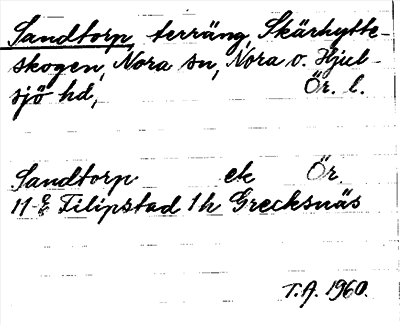 Sandtorp, terräng, Skärhytte-
skogen, Nora sn, Nora o. Hjul-
sjö hd, Ör. l.
Sandtorp ek Ör
11 E Filipstad 1h Grecksnäs
T.A. 1960.